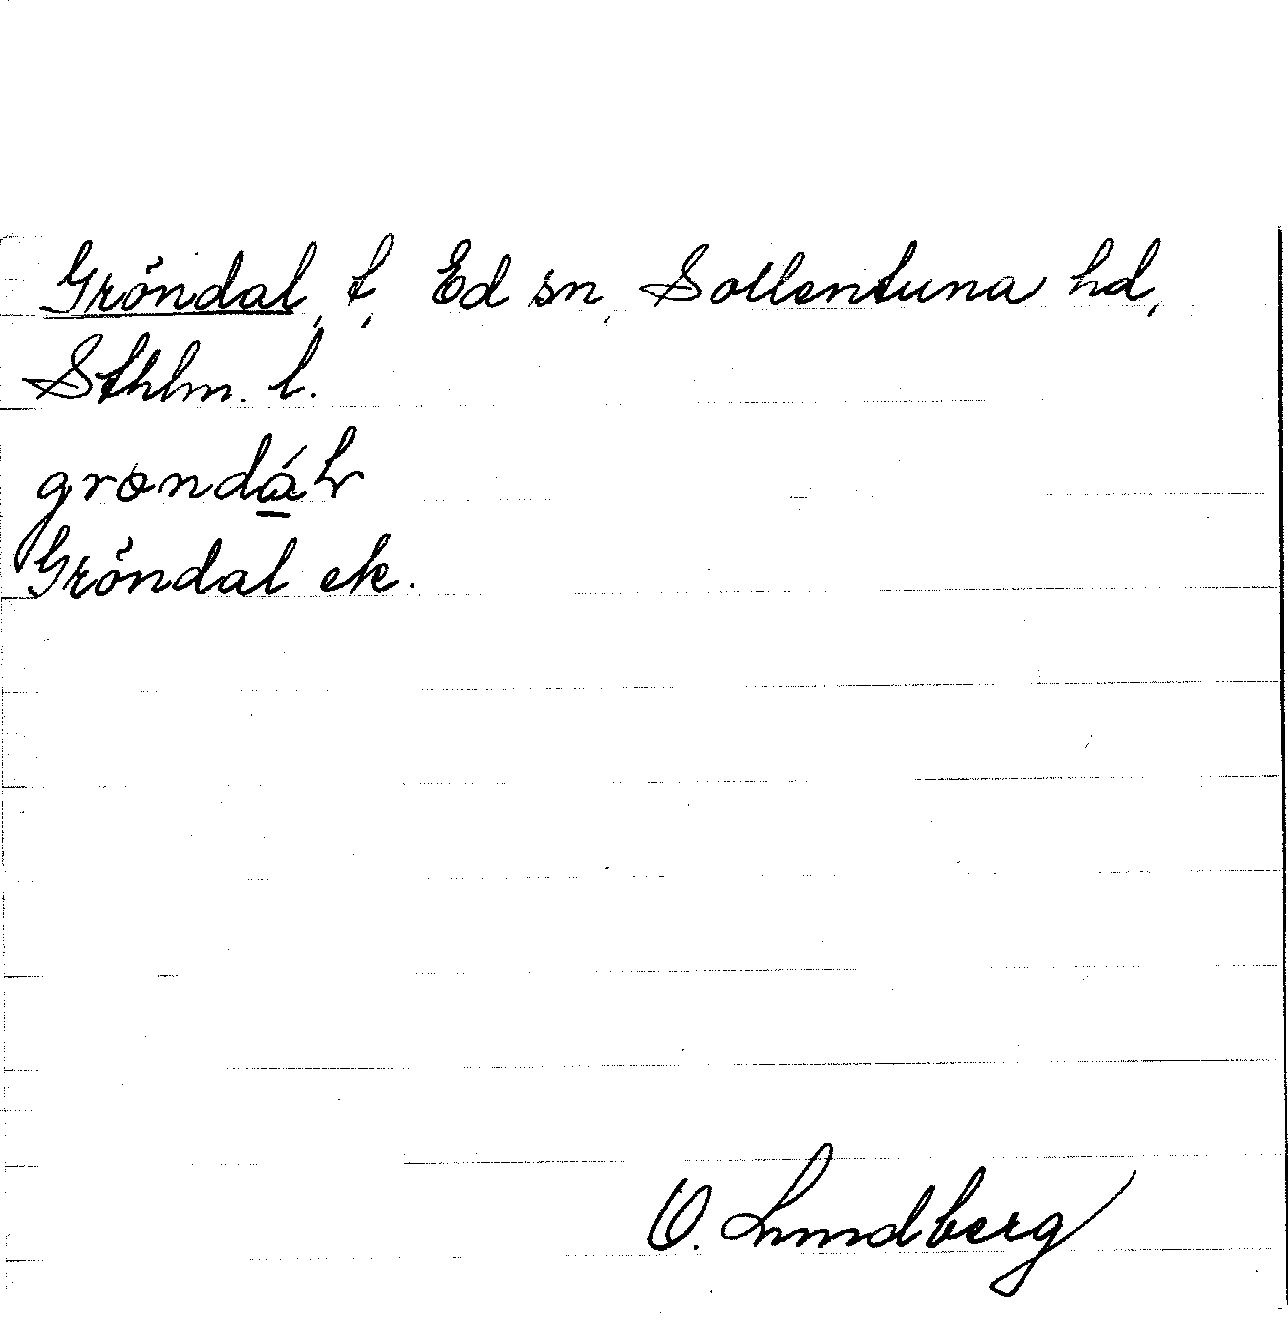 Gröndal, t, Ed sn, Sollentuna hd,
Sthlm. l.
Gröndal ek.
O. Lundberg